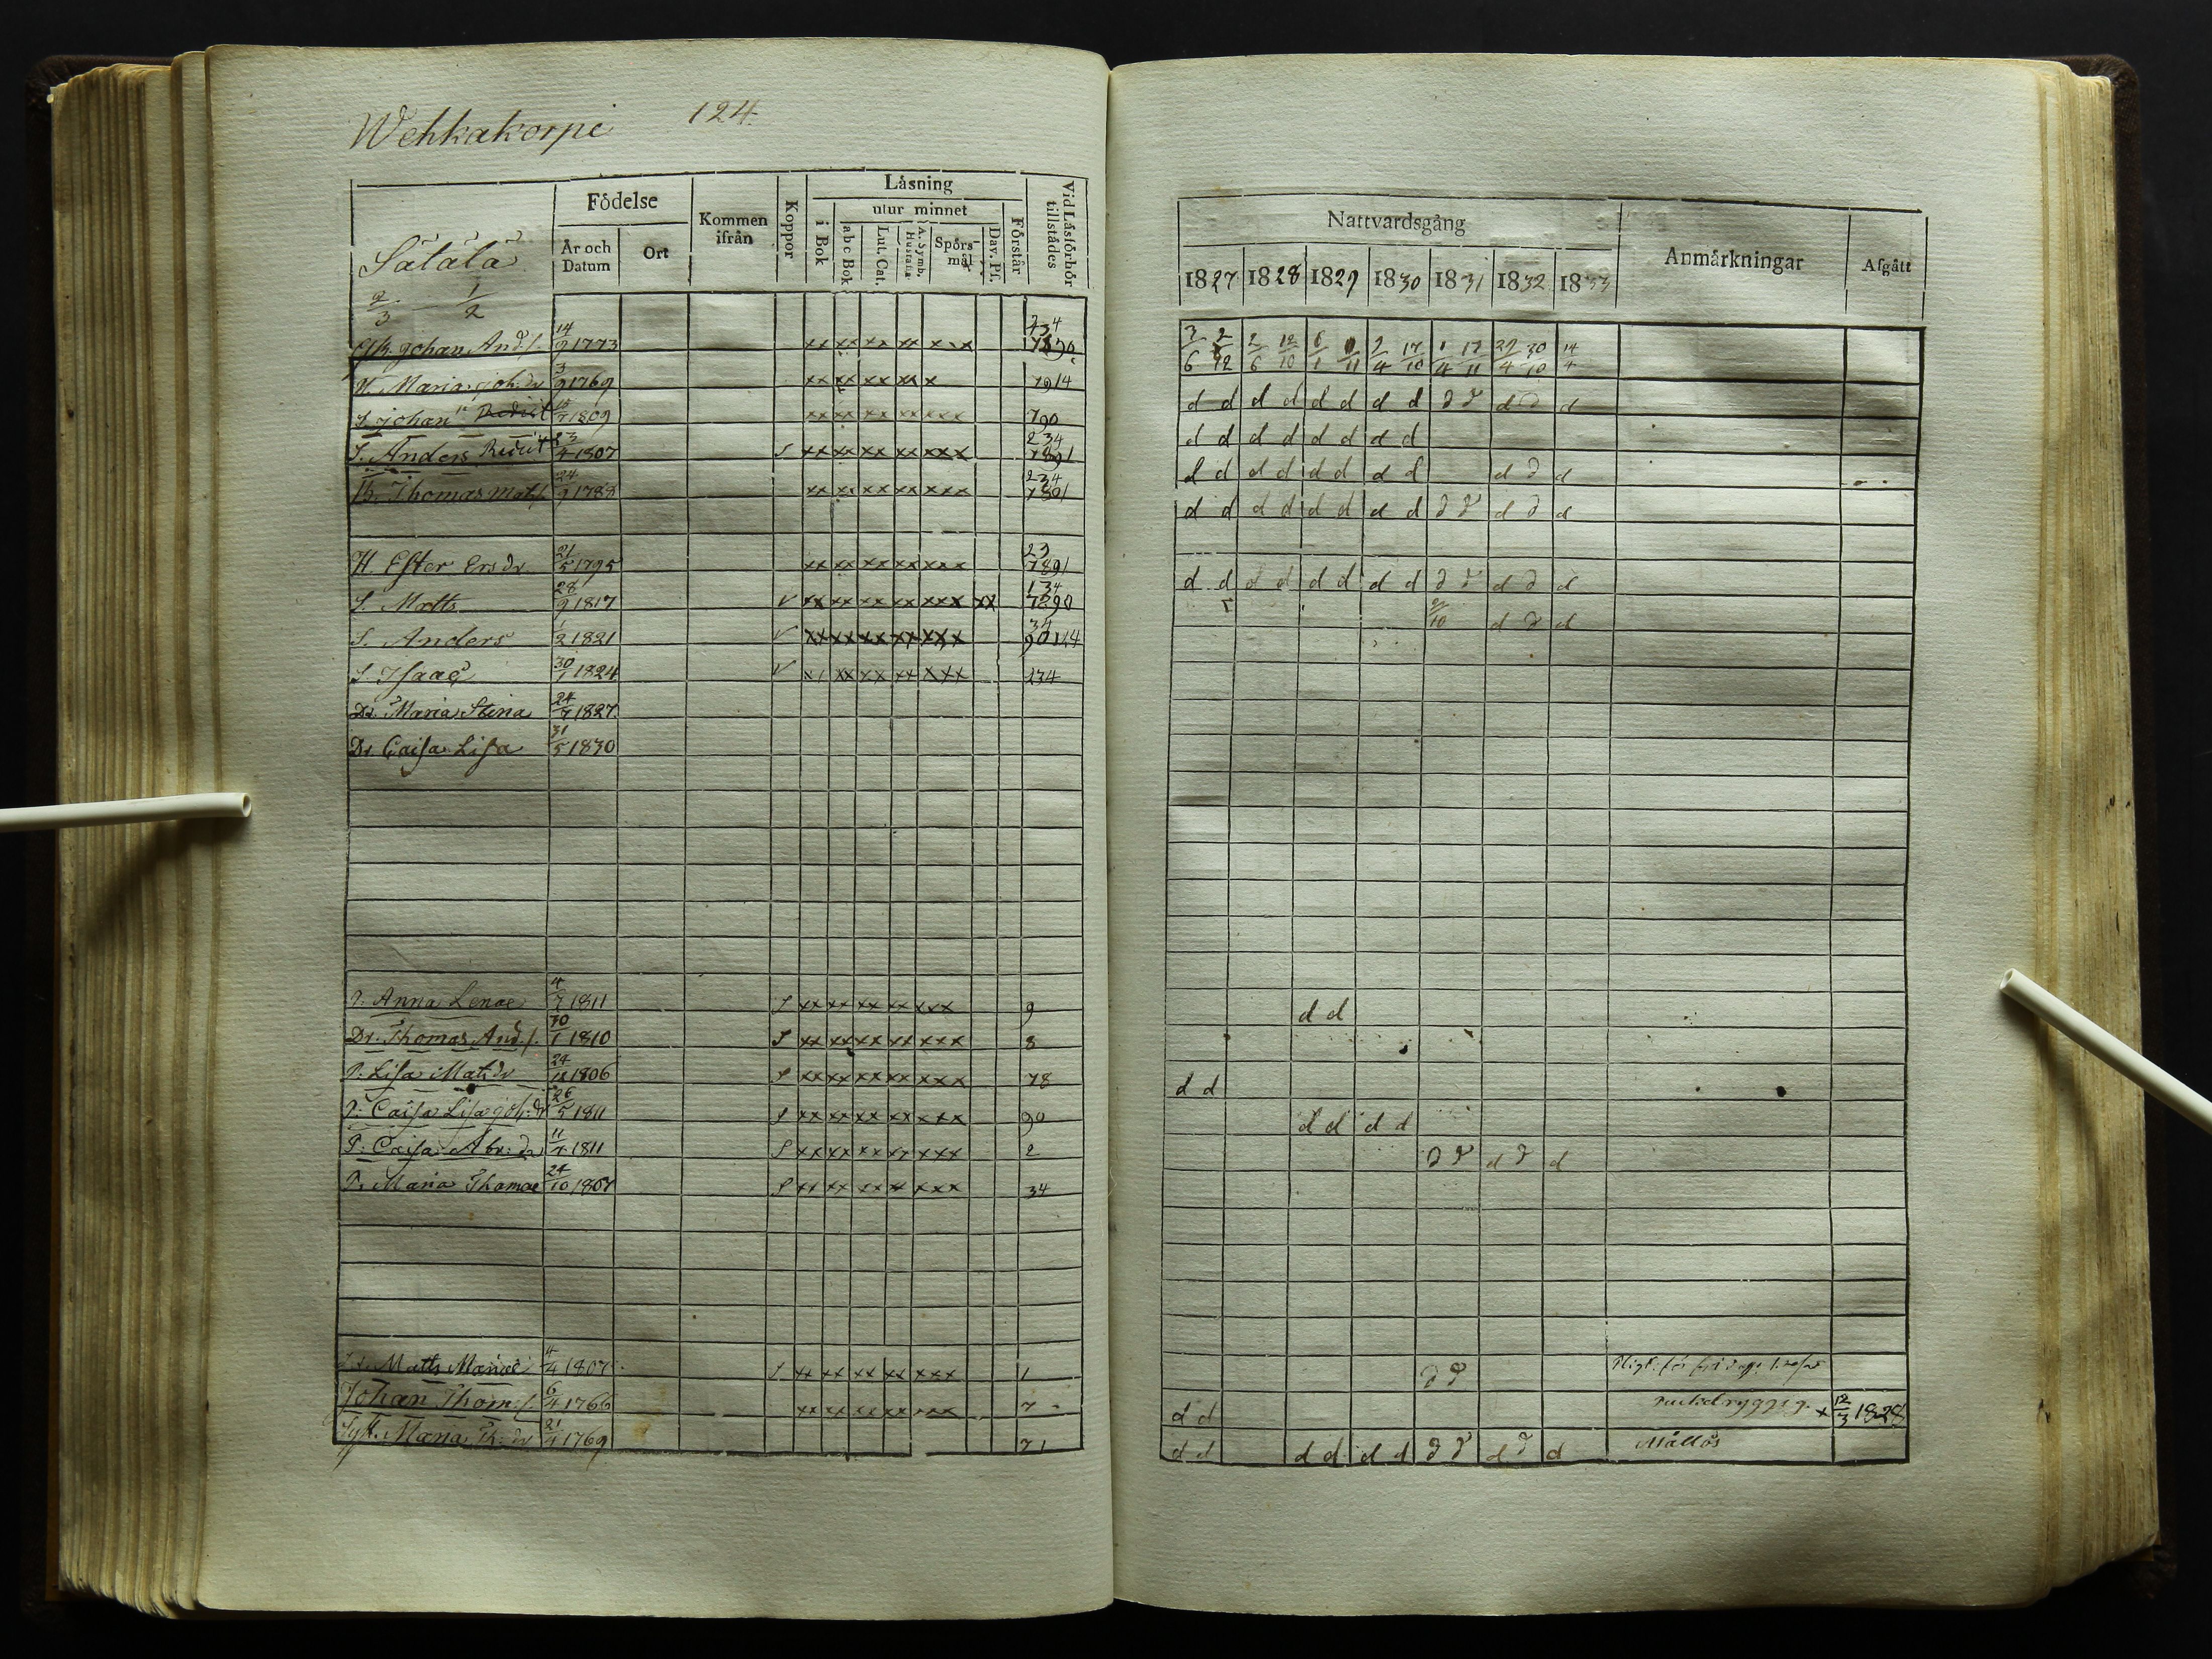 Wehkakorpi 124.
Födelse
Kommen ifrån
Koppor
Läsning
utur minnet
i Bok
abc Bok
Lut. Cat.
A. Symb. Hustafla.
Spörsmål
Dav. Ps.
Förstår
Vid Läsförhör tillstådes
År och Datum
Ort
Sätälä
2/3 1/2
Johan And.s. 14/9 1773 xx xx xx xx x xx
H. Maria Joh:dr 3/9 1769 xx xx xx xx x 7914
S. Johan 15/7 1809 xx xx xx xx xxx 790
S. Anders 23/4 1807 S xx xx xx xx xxx 234
B. Thomas Mat.s. 24/9 178 xx xx xx xx xxx 234 7801
H. Ester Ers dr 21/5 1795 xx xx xx xx xxx 23 7891
S. Matts 28/9 1817 V xx xx xx xx xxx xx 134 7890
S. Anders 1/2 1821 V xx xx xx xx xxx 34
S. Isaac 30/1 1824 V x/ xx xx xx xxx 134
Dr. Maria Stina 24/7 1827.
Dr. Caisa Lisa 31/5 1830
P. Anna Lenae 4/7 1811 S xx xx xx xx xxx 9
Dr. Thomas And.s. 30/1 1810 S xx xx xx xx xxx 8
P. Lisa Mat:dr 24/12 1806 S xx xx xx xx xxx 78
P: Caisa Lisa Joh:dr 26/5 1811 S xx xx xx xx xxx 90
P: Caisa Abr:dr 11/7 1811 S xx xx xx xx xxx 2
P. Maria Thomae 24/10 1807 S xx xx xx xx xxx 34
Matts 4/4 1807 S xx xx xx xx xxx 1
Johan Thom.s. 6/4 1766 xx xx xx xx xxx 7
Maria Th:dr 21/4 1769 71
Nattvardsgång
Anmärkningar
Afgått
1827 1828 1829 1830 1831 1832 1833
3/6 2/12 2/6 12/10 6/1 1/11 2/4 17/10 1/4 17/11 29/4 30/10 14/4
d d d d d d d d d d d d d
d d d d d d d d
d d d d d d d d d d d
d d d d d d d d d d d d d
d d d d d d d d d d d d d
2/10 d d d
d d
d d
d d d d
d d d d d
d d
d d x 12/3 1828
d d d d d d d d d d d Mållös